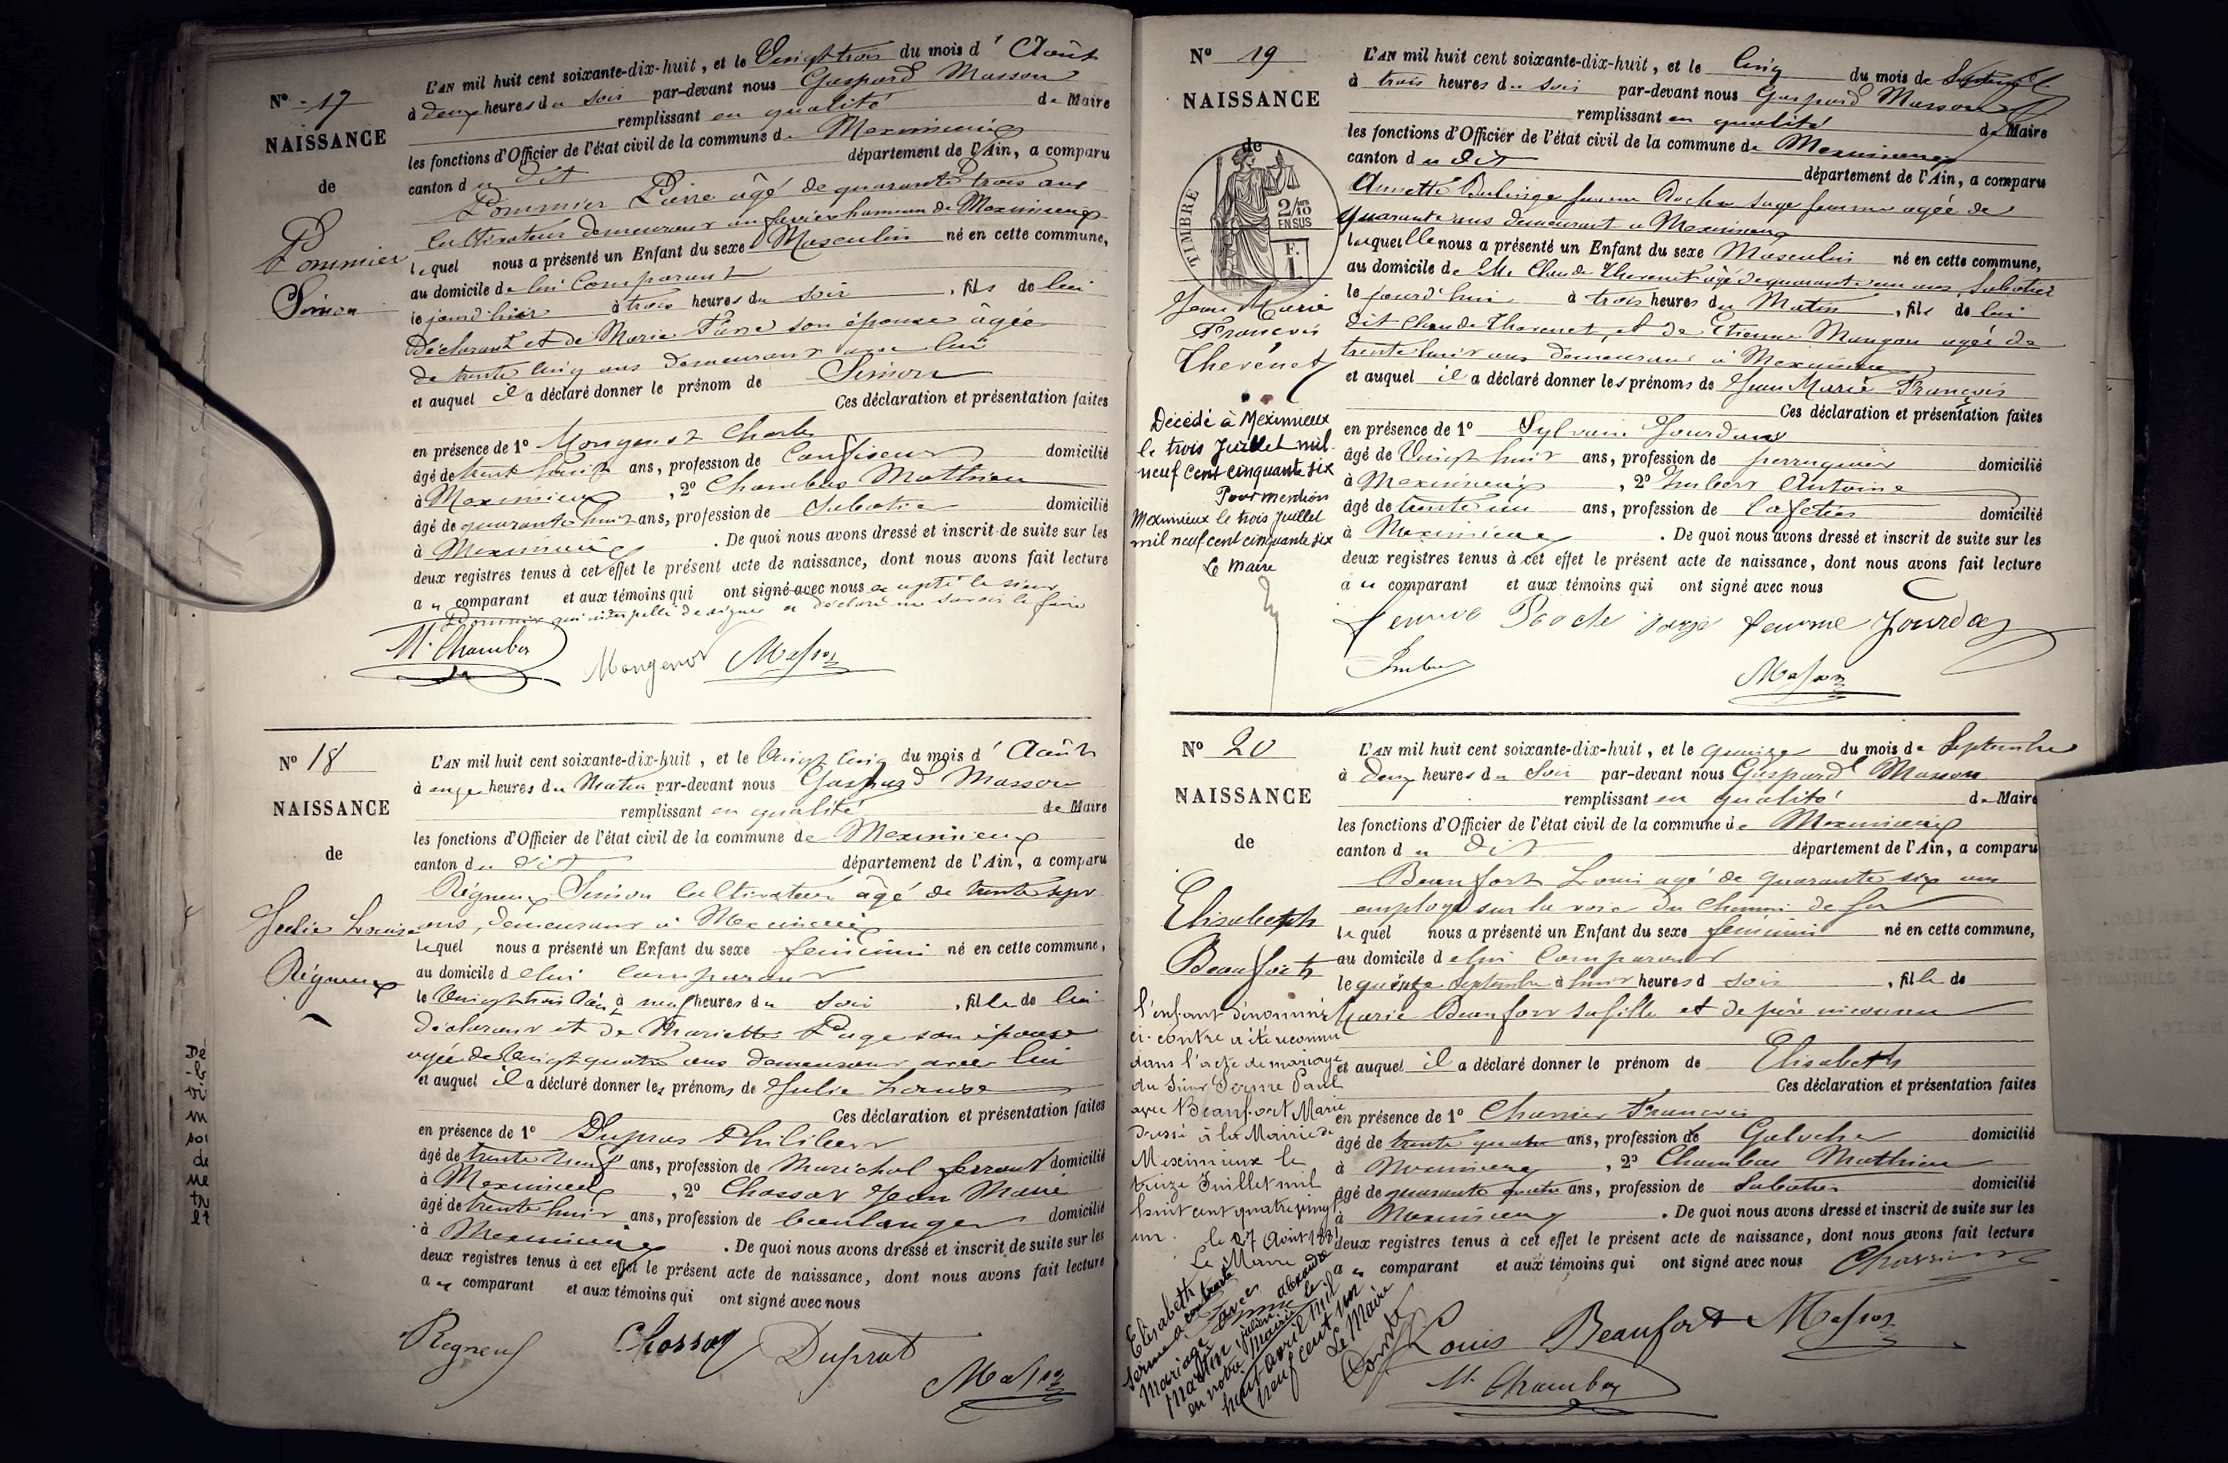 N° 17
NAISSANCE
de
Pommier
Simon
L'AN mil huit cent soixante-dix-huit, et le Vingt trois du mois d'Août
à deux heures du soir par-devant nous Gaspard Masson
remplissant en qualité de Maire
les fonctions d'Officier de l'état civil de la commune de Meximieux
canton du dit département de l'Ain, a comparu
Pommier Pierre âgé de quarante trois ans
Cultivateur demeurant au hameau de Meximieux
lequel nous a présenté un Enfant du sexe Masculin né en cette commune,
au domicile de lui Comparant
le jourd'hier à trois heures du soir, fils de lui
Déclarant et de Marie Favre son épouse âgée
de trente cinq ans demeurant avec lui
et auquel il a déclaré donner le prénom de Simon
Ces déclaration et présentation faites
en présence de 1° Mongenot Charles
âgé de trente huit ans, profession de Confiseur domicilié
à Meximieux, 2° Chambas Mathieu
âgé de quarante huit ans, profession de Sabotier domicilié
à Meximieux. De quoi nous avons dressé et inscrit de suite sur les
deux registres tenus à cet effet le présent acte de naissance, dont nous avons fait lecture
au comparant et aux témoins qui ont signé avec nous excepté le sieur
Pommier qui interpellé de signer a déclaré ne savoir le faire
M. Chambas
Mongenot Masson
N° 18
NAISSANCE
de
Julie Louise
Régneux
L'AN mil huit cent soixante-dix-huit, et le Vingt cinq du mois d'Août
à onze heures du Matin par-devant nous Gaspard Masson
remplissant en qualité de Maire
les fonctions d'Officier de l'état civil de la commune de Meximieux
canton du dit département de l'Ain, a comparu
Régneux Simon Cultivateur âgé de trente sept
ans, demeurant à Meximieux
lequel nous a présenté un Enfant du sexe féminin né en cette commune,
au domicile de lui comparant
le Vingt trois Août à neuf heures du soir, fille de lui
déclarant et de Mariette Page son épouse
âgée de Vingt quatre ans demeurant avec lui
et auquel il a déclaré donner les prénoms de Julie Louise
Ces déclaration et présentation faites
en présence de 1° Dupras Philibert
âgé de trente neuf ans, profession de Maréchal ferrant domicilié
à Meximieux, 2° Chossat Jean Marie
âgé de trente huit ans, profession de boulanger domicilié
à Meximieux. De quoi nous avons dressé et inscrit de suite sur les
deux registres tenus à cet effet le présent acte de naissance, dont nous avons fait lecture
au comparant et aux témoins qui ont signé avec nous
Regneux Chossat Duprat
Masson
N° 19
NAISSANCE
de
TIMBRE
2/10
EN SUS
F.
1
Jean Marie
François
Thévenet
Décédé à Meximieux
le trois Juillet mil
neuf cent cinquante six
Pour mention
Meximieux le trois Juillet
mil neuf cent cinquante six
Le Maire
L'AN mil huit cent soixante-dix-huit, et le Cinq du mois de Septembre
à trois heures du soir par-devant nous Gaspard Masson
remplissant en qualité de Maire
les fonctions d'Officier de l'état civil de la commune de Meximieux
canton du dit département de l'Ain, a comparu
Annette femme Roche sage femme agée de
quarante ans demeurant à Meximieux
laquelle nous a présenté un Enfant du sexe Masculin né en cette commune,
au domicile de Claude Thevenet âgé de quarante un ans, Sabotier
le jourd'hui à trois heures du Matin, fils de lui
dit Claude Thevenet, et de Etiennette Mangon agée de
trente huit ans demeurant à Meximieux
et auquel il a déclaré donner les prénoms de Jean Marie François
Ces déclaration et présentation faites
en présence de 1° Sylvain Jourdan
âgé de Vingt huit ans, profession de perruquier domicilié
à Meximieux, 2° Imbert Antoine
âgé de trente un ans, profession de Cafetier domicilié
à Meximieux. De quoi nous avons dressé et inscrit de suite sur les
deux registres tenus à cet effet le présent acte de naissance, dont nous avons fait lecture
au comparant et aux témoins qui ont signé avec nous
femme Roche sage femme Jourdan
Imbert
Masson
N° 20
NAISSANCE
de
Elisabeth
Beaufort
l'enfant dénommé
ci-contre a été reconnu
dans l'acte de mariage
du Sieur Serme Paul
avec Beaufort Marie
dressé à la Mairie de
Meximieux le
treize Juillet mil
huit cent quatre vingt
un. le 27 Août 1881
Le Maire
Elisabeth
Serme a contracté
Mariage avec
Martin Julien Alexandre
en notre Mairie le
huit avril mil
neuf cent un
Le Maire
L'AN mil huit cent soixante-dix-huit, et le quinze du mois de Septembre
à deux heures du soir par-devant nous Gaspard Masson
remplissant en qualité de Maire
les fonctions d'Officier de l'état civil de la commune de Meximieux
canton du dit département de l'Ain, a comparu
Beaufort Louis agé de quarante six ans
employé sur la voie du Chemin de fer
lequel nous a présenté un Enfant du sexe féminin né en cette commune,
au domicile de lui Comparant
le quinze Septembre à huit heures du soir, fille de
Marie Beaufort sa fille et de père inconnu
et auquel il a déclaré donner le prénom de Elisabeth
Ces déclaration et présentation faites
en présence de 1° Charrier François
âgé de trente quatre ans, profession de Galocher domicilié
à Meximieux, 2° Chambas Mathieu
âgé de quarante quatre ans, profession de Sabotier domicilié
à Meximieux. De quoi nous avons dressé et inscrit de suite sur les
deux registres tenus à cet effet le présent acte de naissance, dont nous avons fait lecture
au comparant et aux témoins qui ont signé avec nous Charrier
Louis Beaufort Masson
M. Chambas